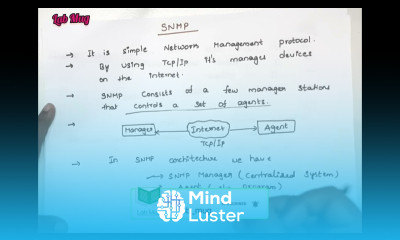 Lab Mug
SNMP
→ It is simple Network Management protocol.
→ By using Tcp/Ip it's manages devices
on the Internet.
→ SNMP Consists of a few manager stations
that controls a set of agents.
→ Manager Internet Agent
Tcp/Ip
→ In SNMP architecture we have
→ SNMP Manager (Centralized System)
Mind
Luster